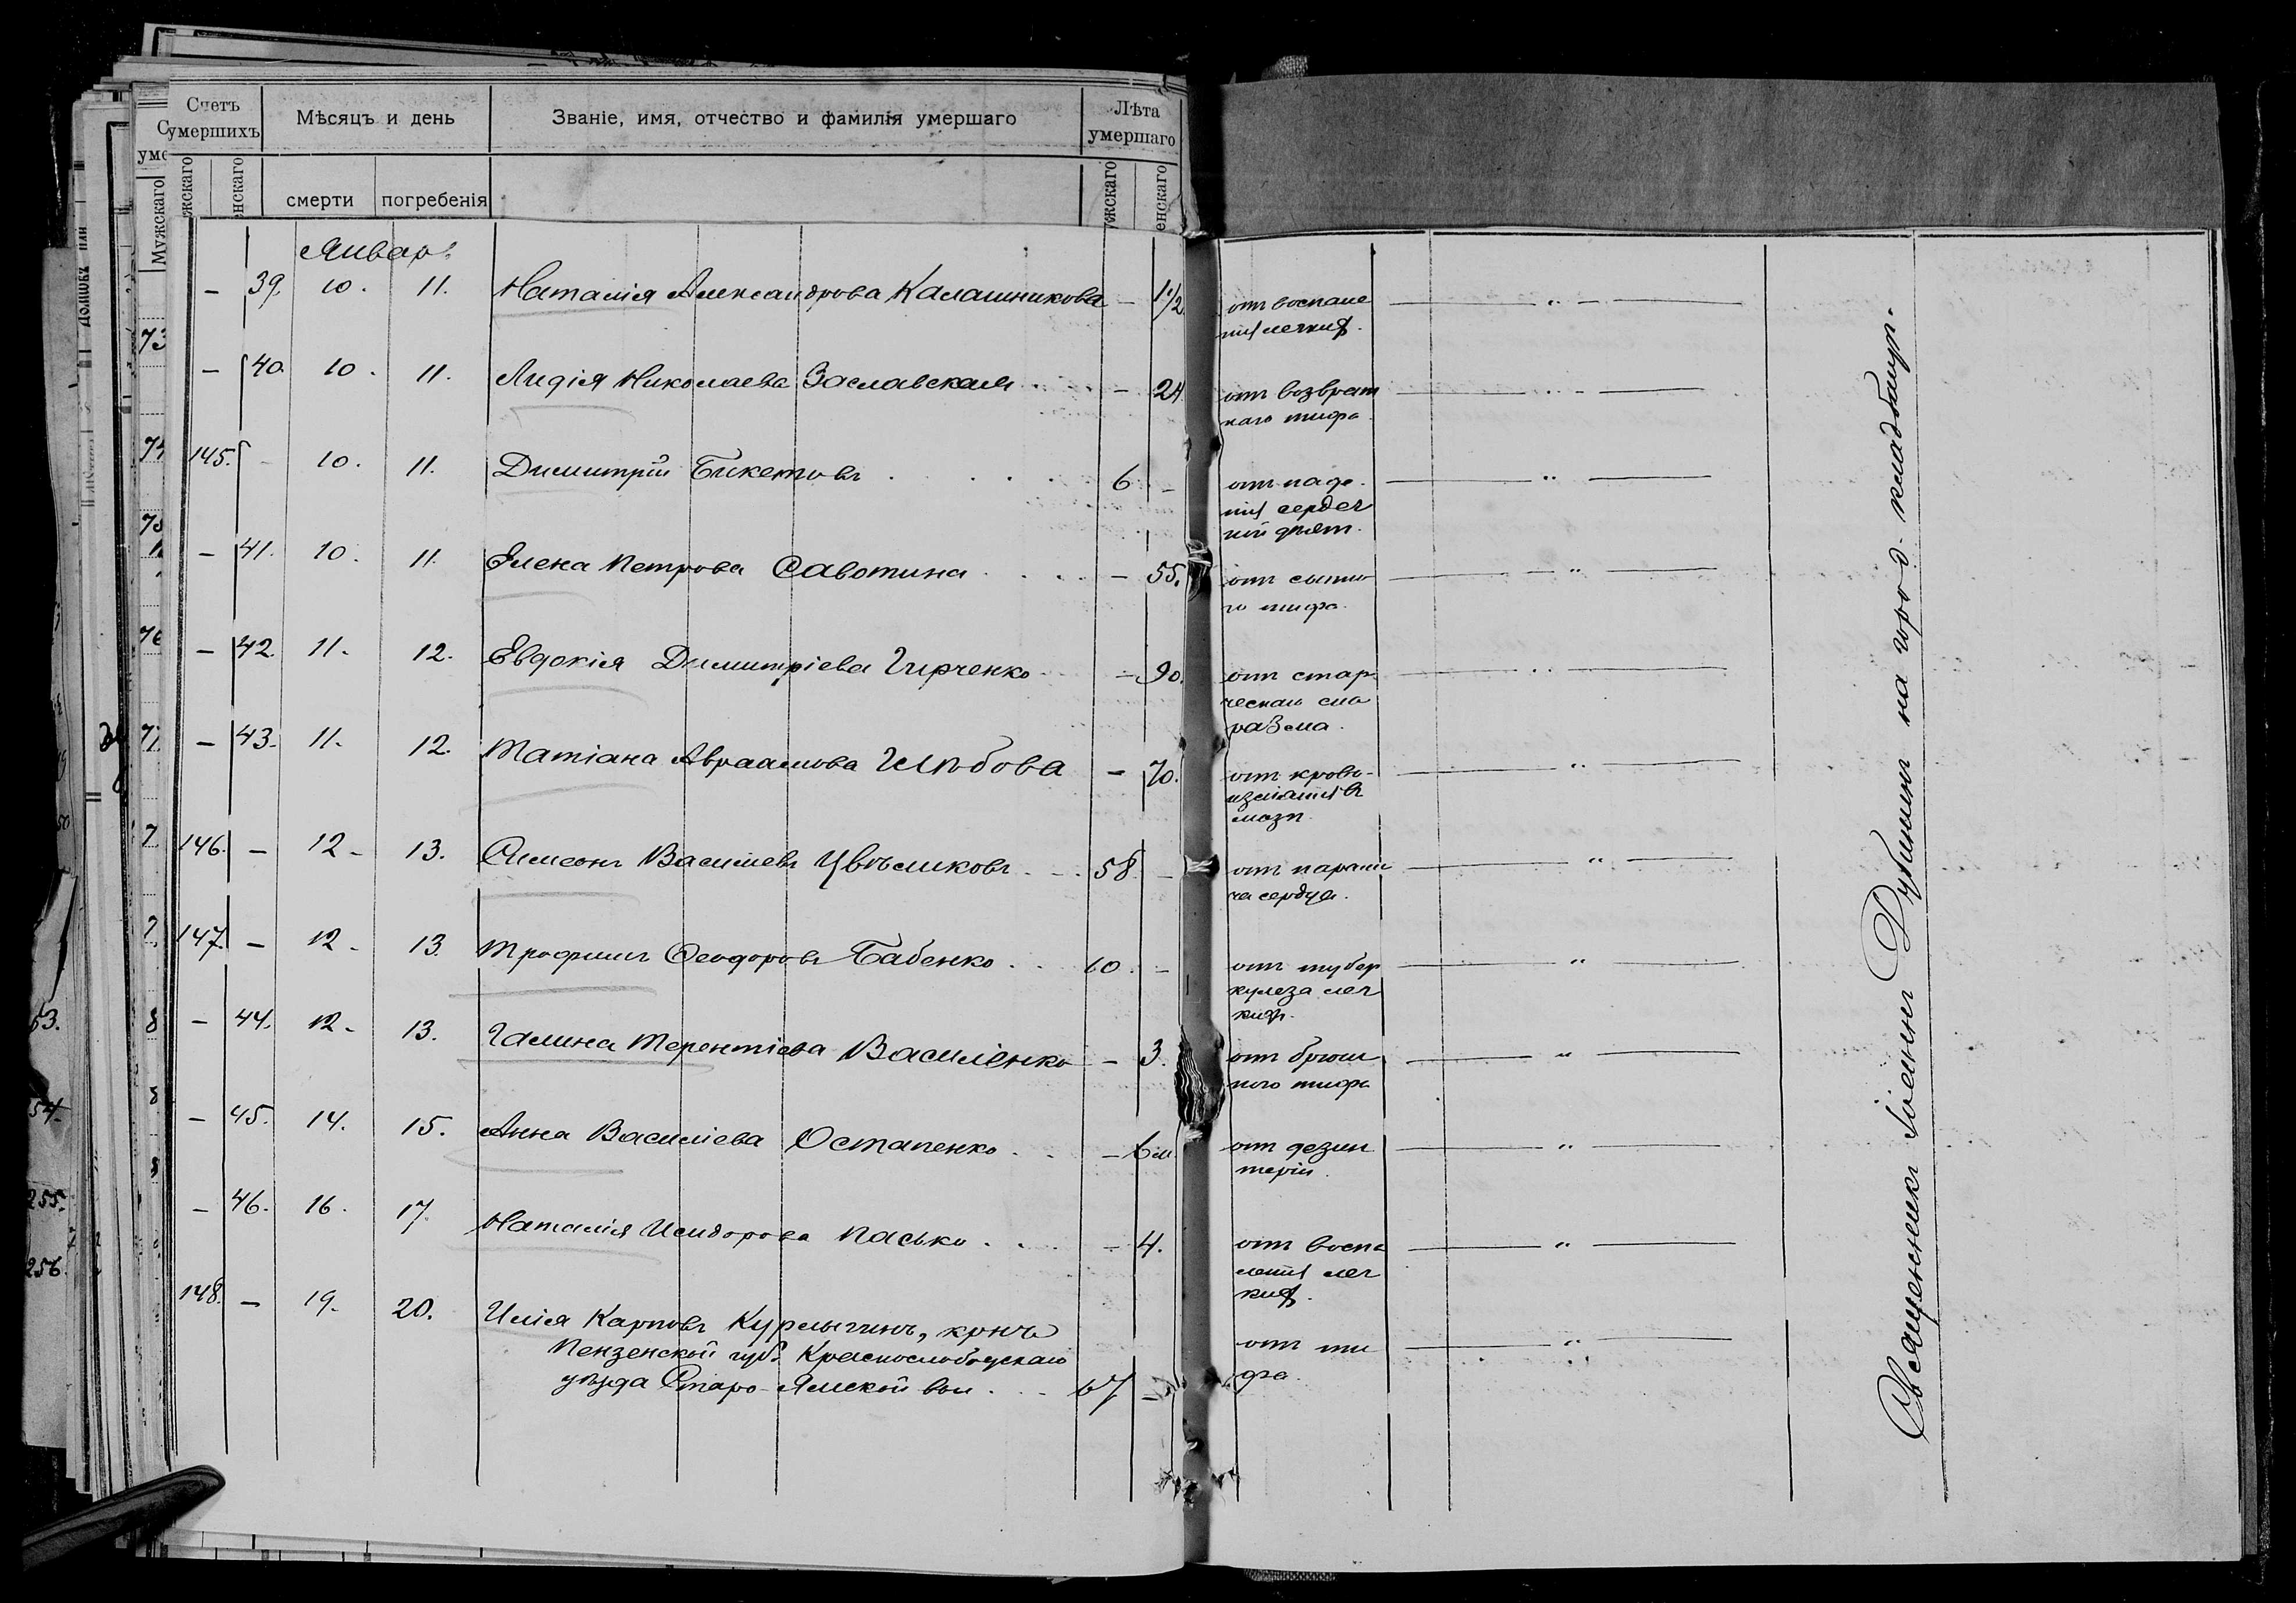 Счетъ умершихъ
Мѣсяцъ и день
Званіе, имя, отчество и фамилія умершаго
Лѣта умершаго
Мужскаго
смерти
погребенія
Январ.
— 39. 10. 11. Наталія Александрова Калашникова — 1 1/2 отъ воспале
нія легкихъ.
— 40. 10. 11. Лидія Николаева Заславская — 24 отъ возврат
наго тифа
145. - 10. 11. Димитрій Бикетовъ 6 — отъ паде-
нія сердеч
ной дѣят.
— 41. 10. 11. Елена Петрова Савотина — 55. отъ сыпно
го тифа.
— 42. 11. 12. Евдокія Димитріева Гирченко — 90. отъ стар
ческаго сма
разма.
— 43. 11. 12. Татіана Авраамова Глѣбова — 70. отъ крово-
изліянія въ
мозгъ
146. — 12. 13. Симеонъ Василіевъ Цвѣликовъ 58. — отъ парали
ча сердца.
147. — 12. 13. Трофимъ Ѳеодоровъ Бабенко 60. — отъ тубер
кулеза лег
кихъ.
— 44. 12. 13. Галина Терентіева Василенко — 3. отъ брюш
ного тифа
— 45. 14. 15. Анна Василіева Остапенко — 6 м. отъ дезин
теріи.
— 46. 16. 17. Наталія Исидорова Пасько — 4. отъ воспа
ленія лег
кихъ.
148. — 19. 20. Илія Карповъ Курмыгинъ, крнъ
Пензенской губ. Краснослободскаго
уѣзда Старо-Ямской вол. 67 — отъ ти
фа.
Священникъ Іоаннъ Дубининъ на город. кладбищѣ.